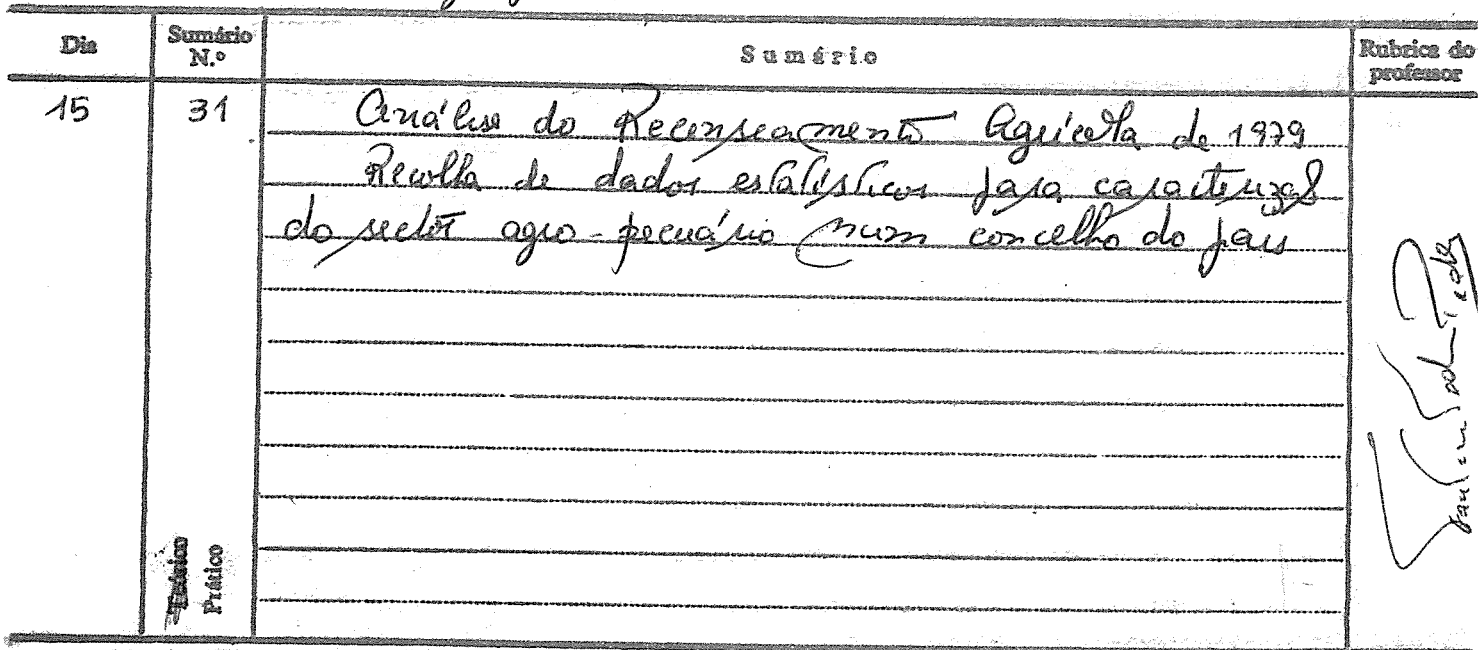 Dia Sumário N.º Sumário Rubrica do professor
15 31 Análise do Recenseamento Agrícola de 1979
Recolha de dados estatísticos para caracterizaç
do sector agro-pecuário num concelho do país
Teórico
Prático